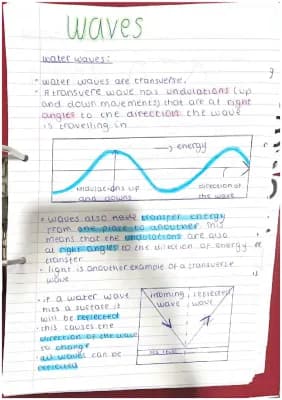 waves
water waves:
• water waves are transverse.
• A transvere wave has undulations (up
and down movements) that are at right
angles to the direction the wave
is travelling in
→ energy
undulations up
and downs
direction of
the wave
• waves also have transfer energy
from one place to another. This
means that the undulations are also
at right angles to the direction of energy
transfer
• light is another example of a transverse
wave
• if a water wave
hits a surface it
will be reflected
• this causes the
direction of the wave
to change
• all waves can be
reflected
incoming
wave
reflected
wave